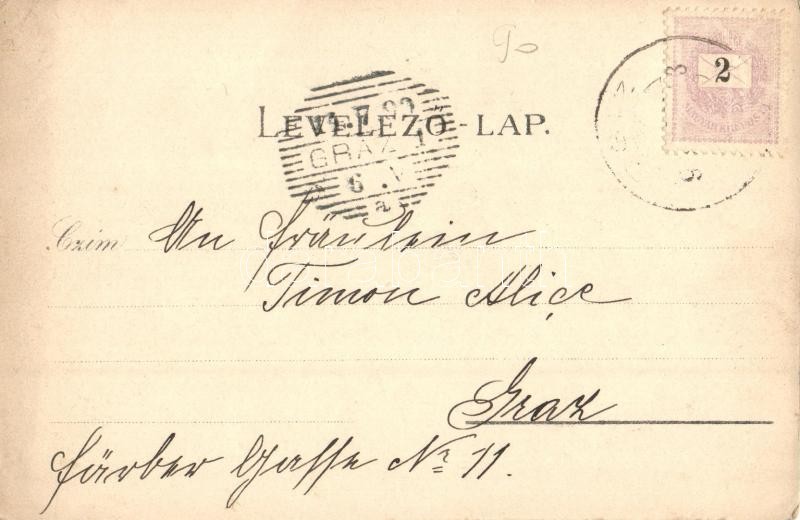 2
LEVELEZŐ-LAP.
GRAZ 1
6 . V
a
Czim An Fräulein
Timon Alice
Graz
Färber Gasse No 11.